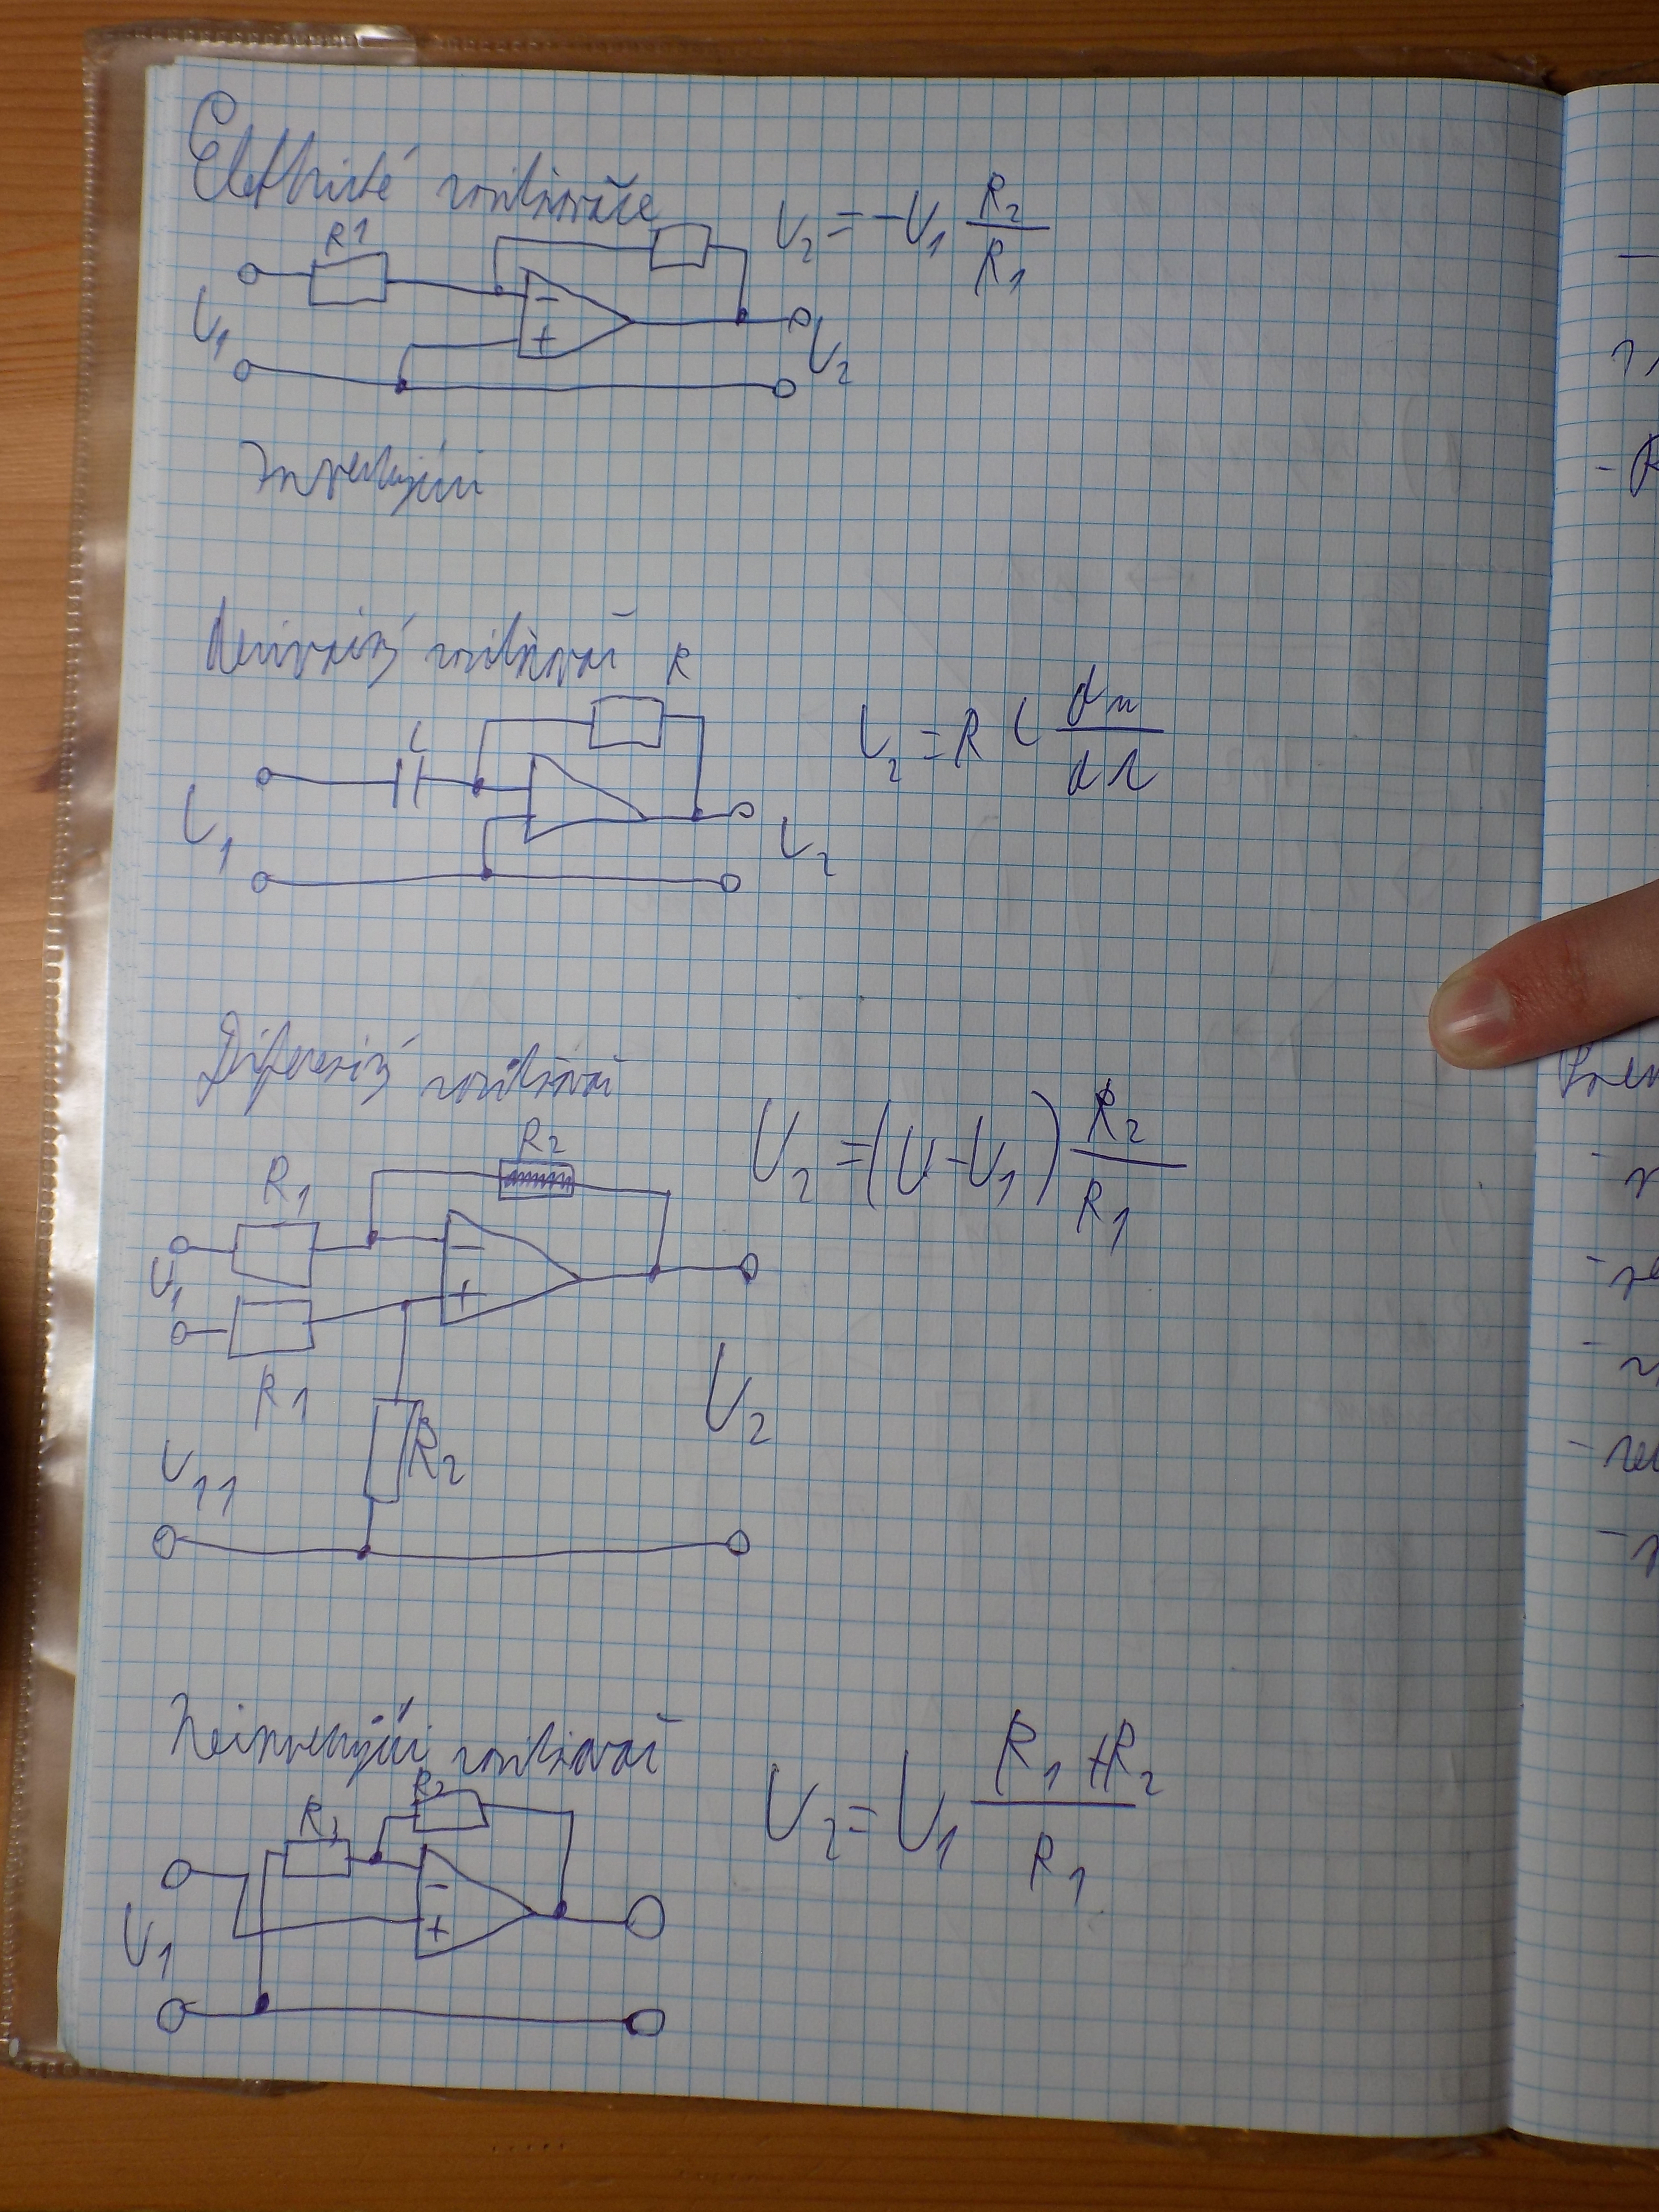 Elektrické zesilovače
U₂ = -U₁ R₂/R₁
R1
- +
U₁
U₂
Invertující
Derivační zesilovač
R
C
U₂ = R C du/dt
U₁
U₂
Diferenční zesilovač
U₂ = (U-U₁) R₂/R₁
R₂
R₁
U₁
- +
R1
U₂
R₂
U₁₁
Neinvertující zesilovač
U₂ = U₁ (R₁+R₂)/R₁
R₂
- +
U₁